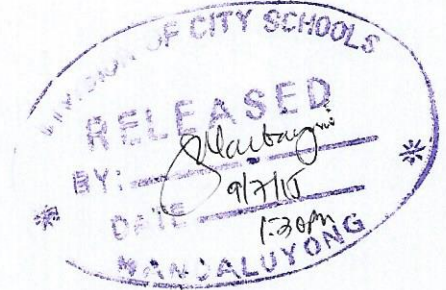 DIVISION OF CITY SCHOOLS
RELEASED
BY:
DATE 9/7/15
1:30pm
MANDALUYONG